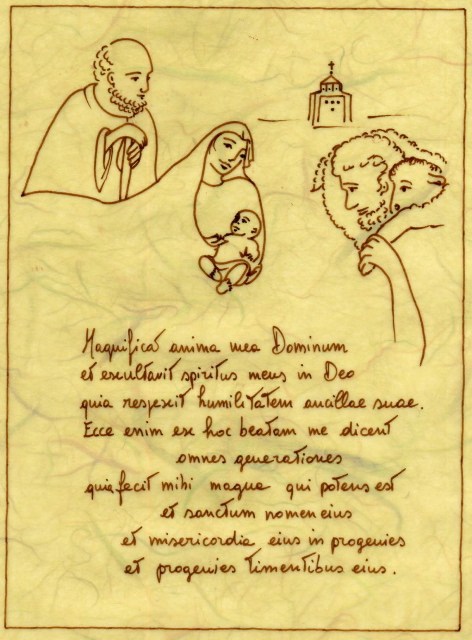 Magnificat anima mea Dominum
et exultavit spiritus meus in Deo
quia respexit humilitatem ancillae suae.
Ecce enim ex hoc beatam me dicent
omnes generationes
quia fecit mihi magna qui potens est
et sanctum nomen eius
et misericordia eius in progenies
et progenies timentibus eius.